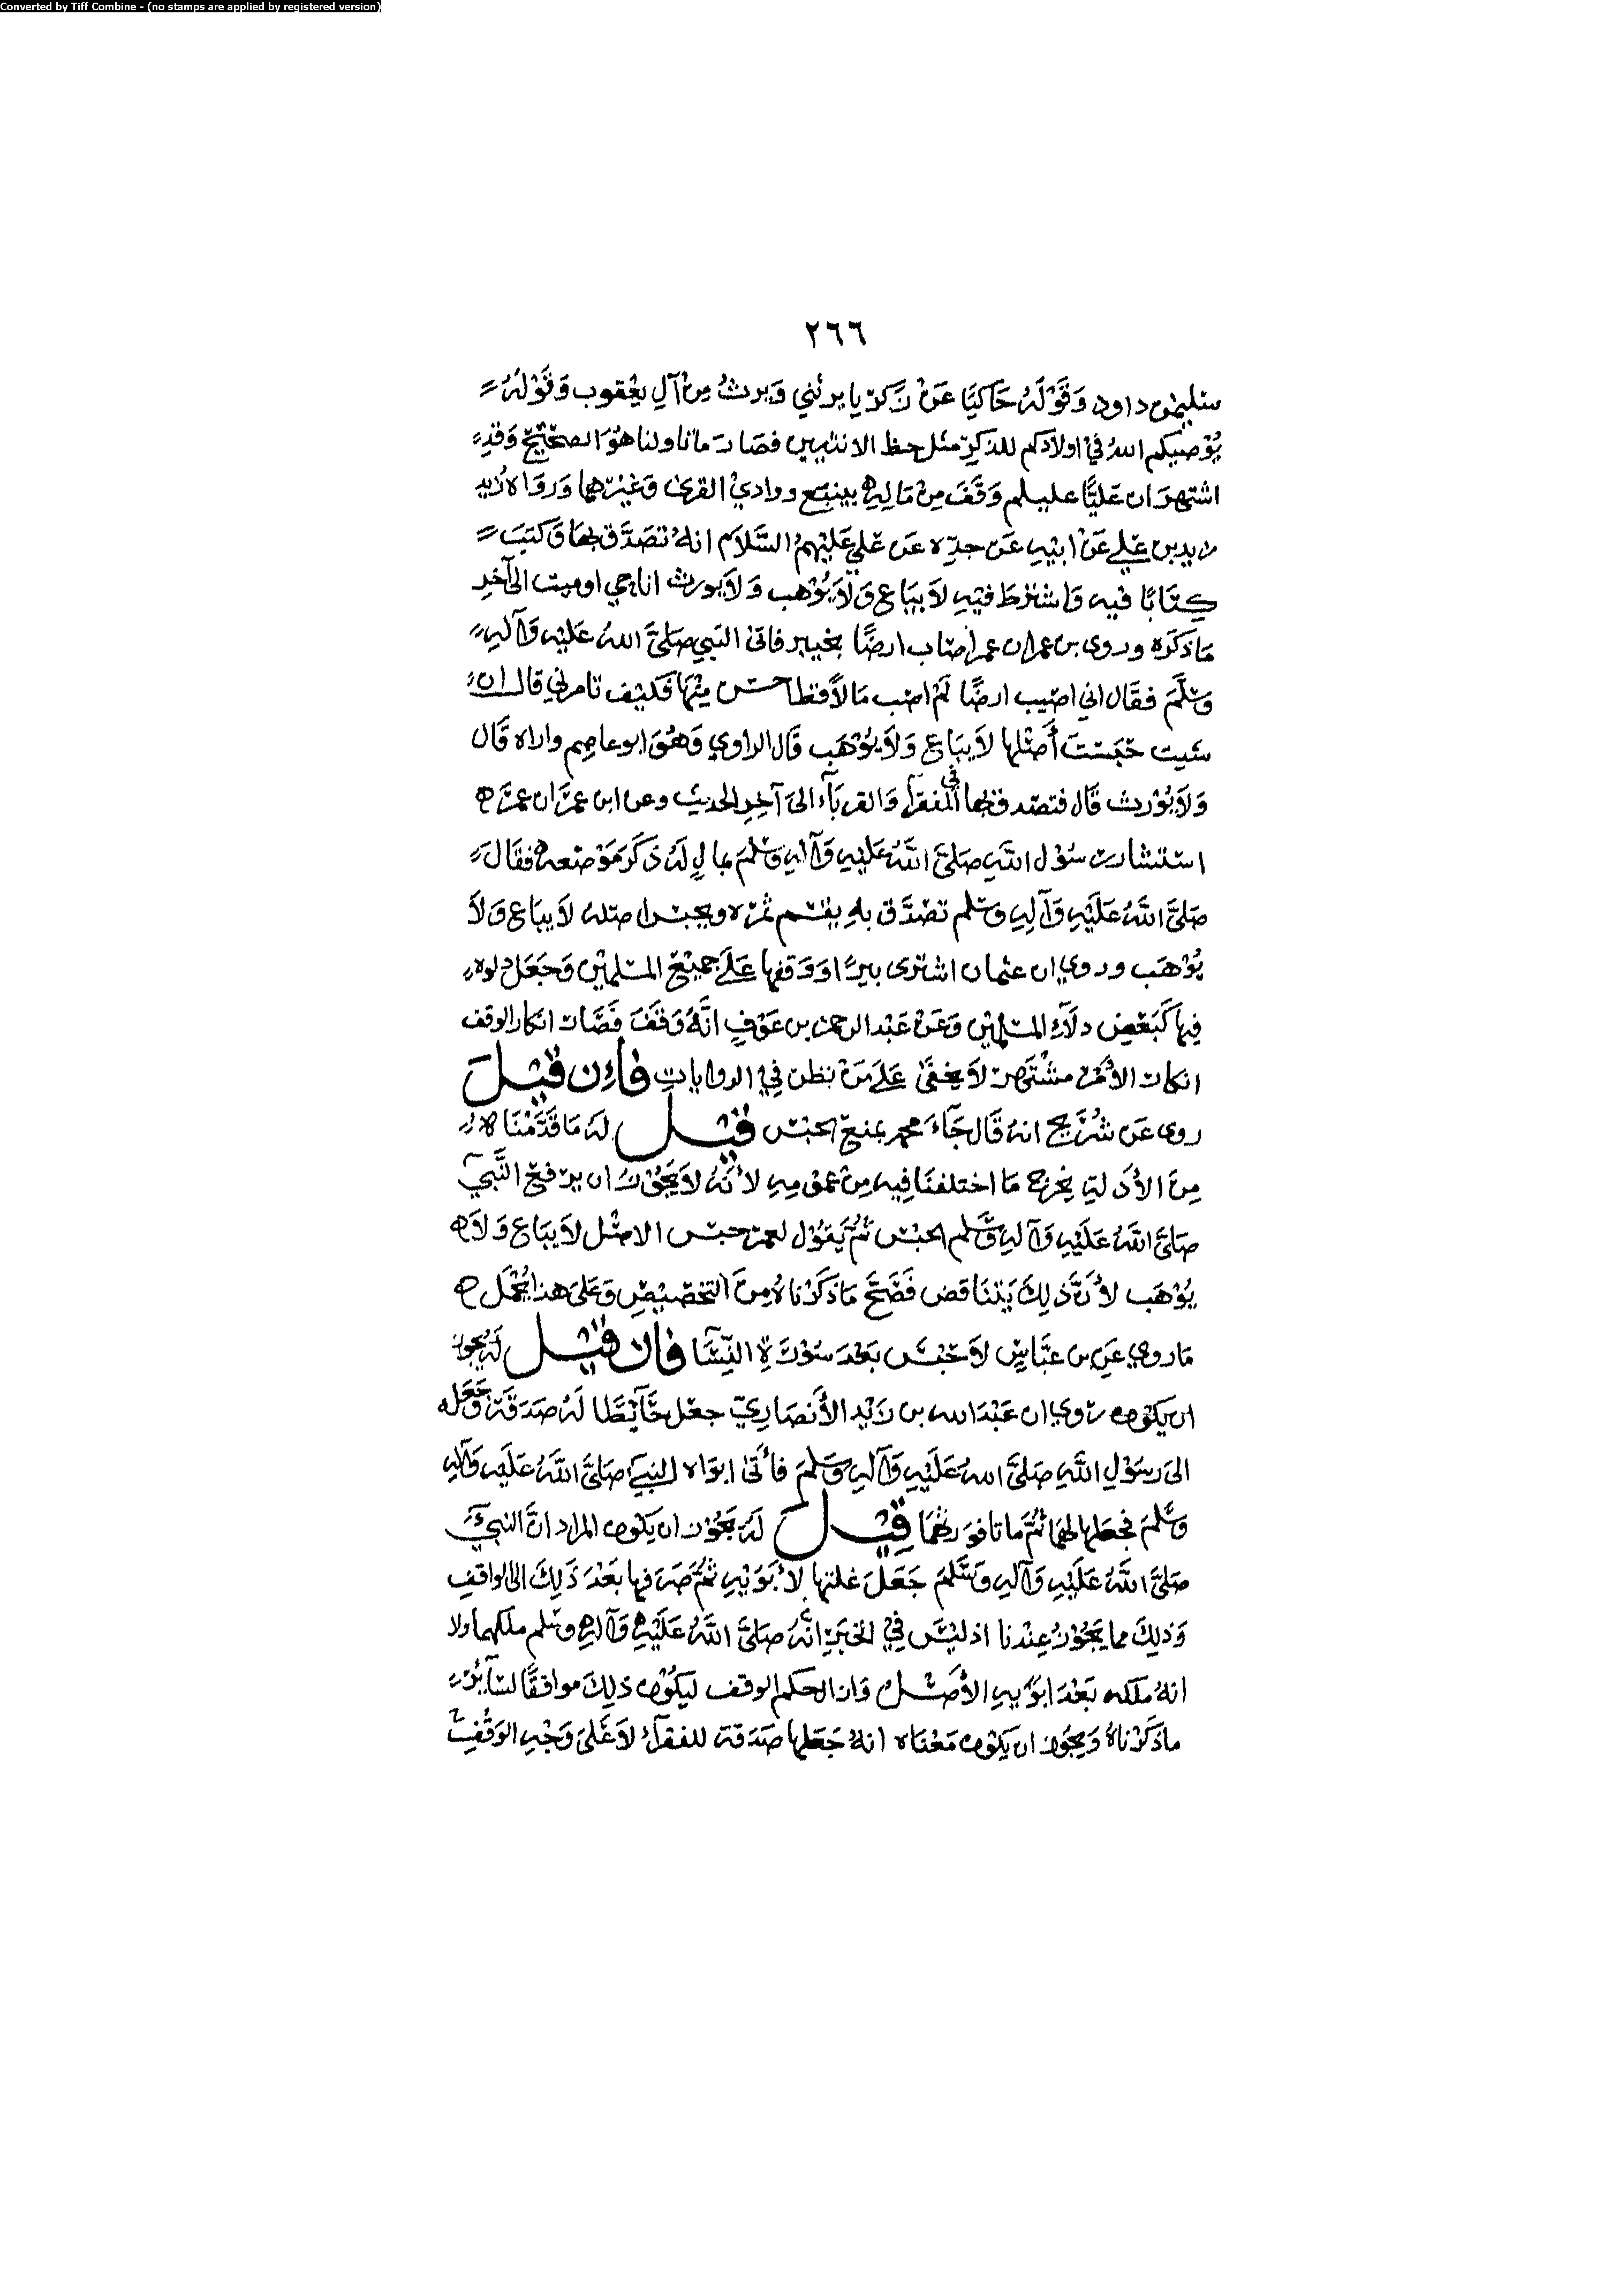 Converted by Tiff Combine - (no stamps are applied by registered version)
٢٦٦
سليمن داود وَقَوْلَهُ حَاكيًا عَنْ زَكَرِيا يرثني وَيرثُ مِنْ آلِ يعْقوب وَقَوْلهُ
يُوْصيكم اللهُ فيْ اولادكم للذكرِ مثل حظ الانثيين فصَارَ مَا تاولنا هوَ الصحيْح وَقدِ
اشتهرَ ان عَليًّا عليلم وَقَفَ مِنْ مَالِهِ بينبَع ووادي القرى وَغيْرهما وَرَوَاهُ زيد
زيد بن عَلي عَنْ ابيْهِ عَن جدّه عَن عَلي عَليْهمُ السَّلاَم انهُ تصَدَّق بهَا وَكتبَ
كِتَابًا فيه وَاشترَطَ فيْهِ لاَ يبَاع وَلاَ يُوْهب وَلاَ يورث اناحي اوميت الى آخرِ
مَا ذكَرَه وروى بن عمر ان عمر اصَاب ارضًا بخيبر فاتى النبي صَلىَّ اللهُ عَليْه وَآلهِ
وَسَلَّمَ فقَال اني اصيب ارضًا لمْ اصب مَالاً قط احسن مِنْهَا فكيْف تامرني قال ان
شيت حَبَسْتَ أصْلها لاَ يبَاع وَلاَ يوْهَب قَال الراوي وَهُوَ ابو عاصِم واراه قَال
وَلاَ يُوْرث قَال فتصَدق بها في الفقرآ وَالقربَآء الىَ آخرِ الحديث وعن ابن عمَر ان عمَر
استشار رسُوْل اللَّهِ صَلىَّ اللَّهُ عَليْهِ وَآلهِ وَسَلمَ بمالٍ لهُ ذكَرَ مَوْضعه فقَالَ
صَلىَّ اللَّهُ عَليْهِ وَآلهِ وَسَلم تصَدَّق بهِ يقْسم ثمرَه ويحبس اصله لاَ يبَاع وَلاَ
يُوْهَب وروي ان عثمان اشترى بيرًا ووقفها عَلىَ جميْع المسْلميْن وَجَعَل دلوه
فيها كبَعْضِ دلآءِ المسْلميْن وَعَنْ عَبْد الرحمن بن عَوْفٍ انَّهُ وَقَفَ فصَار انكار الوقف
انكار الأمْرٍ مشْتَهر لاَ يخفىَ عَلىَ مَنْ نظر فيْ الروايات فَإن قيْلَ
روى عَن شرَيح انهُ قَال جَآءَ محمد بمنع الحبْس قيْل لهُ مَا قَدَّمْنَاهُ
مِنَ الأدَلة يخرج مَا اختلفنَا فيه مِنْ عمُومهِ لأنَّهُ لاَ يجَوْزُ ان يرْفع النَّبي
صَلىَّ اللَّهُ عَليْهِ وَآلهِ وَسَلم الحبْس ثمَّ يَقُوْل لعمر حبس الاصْل لاَ يبَاع وَلاَ
يُوْهَب لأنَّ ذلكَ يتنَاقض فَصَحَّ مَا ذكَرْناهُ مِنَ التخصيْصِ وَعَلىَ هذا يُحْمَل
مَا روي عَن بن عبَّاسٍ لاَ حَبْسَ بَعْدَ سُوْرَةِ النِّسَآ فان قيْل لمَ يجوز
ان يكوْن روي ان عَبْدَ الله بن زَيْد الأنصَاريّ جعَل حَآئِطًا لهُ صَدَقة وَجَعَله
الىَ رسَوْلِ اللَّهِ صَلىَّ اللهُ عَليْهِ وَآلهِ وَسَلمَ فأتَى ابوَاه النبي صَلىَّ اللَّهُ عَليْهِ وَآلهِ
وَسَلَّمَ فجعَلها لهمَا ثُمَّ ماتا فورثهُمَا قيْل لهُ يَجَوْز ان يكوْن المراد انَّ النبيَّ
صَلىَّ اللَّهُ عَليْهِ وَآلهِ وَسَلَّمَ جَعَلَ غلتها لأبَوَيْهِ ثُمَّ صَرَفها بَعْدَ ذَلكَ الى الواقفِ
وَذلكَ مما يَجُوْزُ عِنْدنا اذ ليْسَ فيْ الخبرِ انَّهُ صَلىَّ اللَّهُ عَليْهِ وَآلهِ وَسَلم ملكهما ولا
انهُ ملكه بَعْدَ ابوَيهِ الأصْل وَان الحكم الوقف ليَكُوْن ذلكَ موافقًا لسَآئرِ
ماذكَرْناهُ وَيجُوز ان يكوْن مَعْنَاه انهُ جَعَلها صَدَقة للفقرآء لاَ عَلىَ وَجْهِ الوَقْفِ